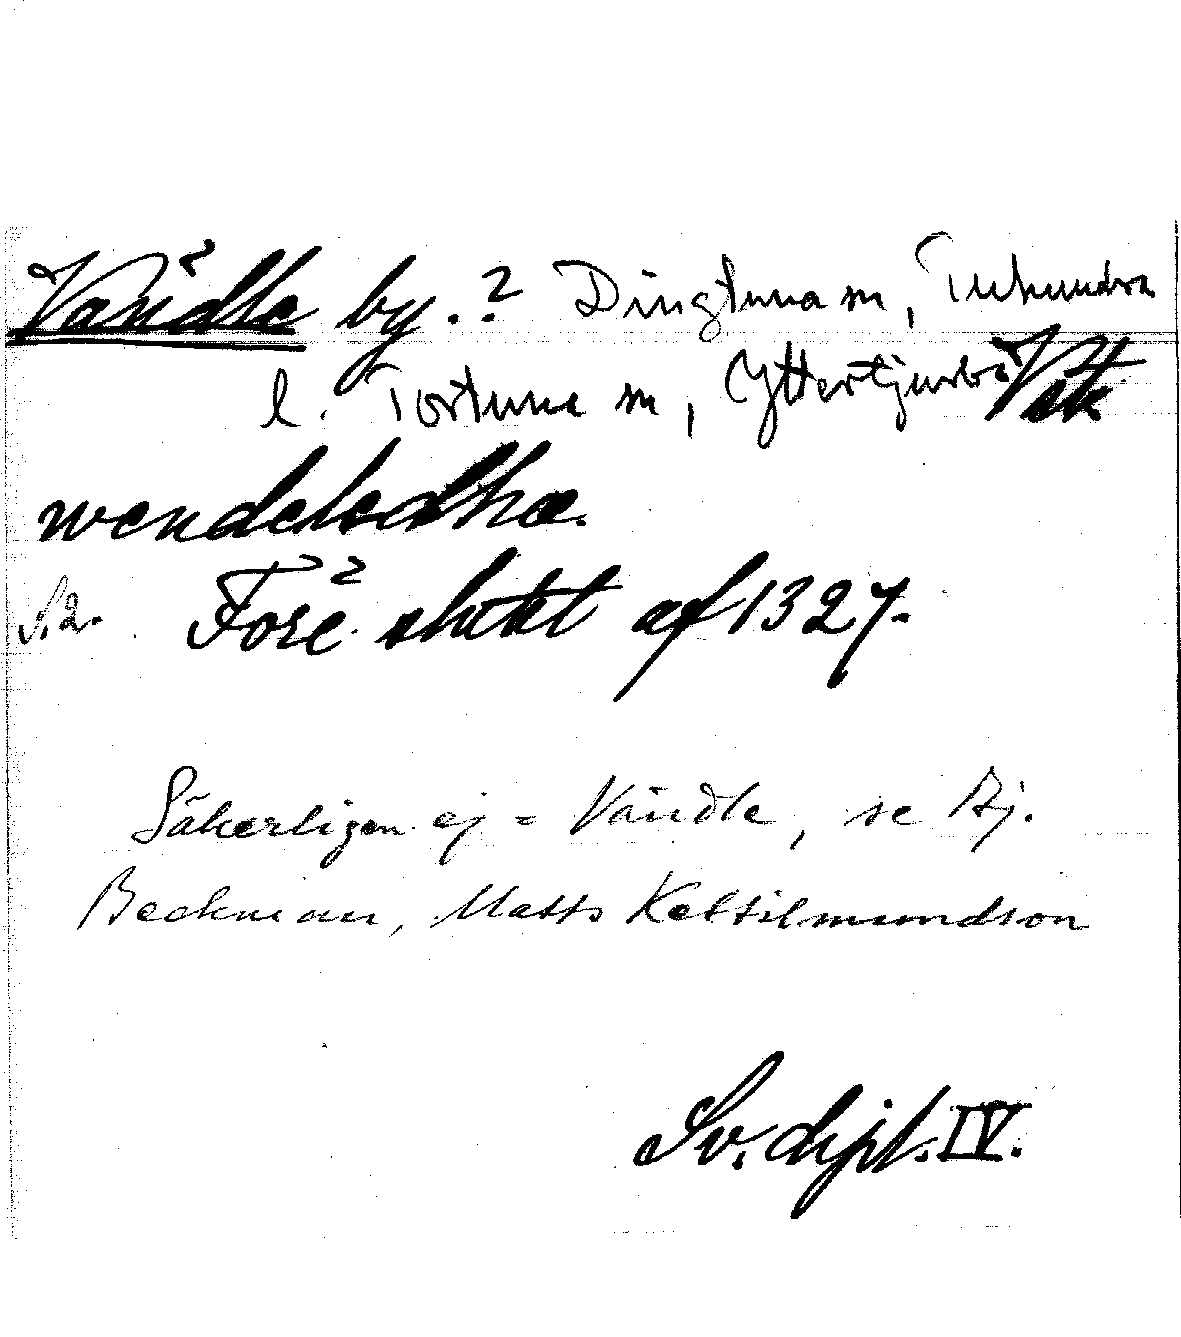 Vändle by.? Dingtuna sn, Tuhundra
l. Tortuna sn, Yttertjurbo Vstm
wendeledhæ.
s. 2. Före slutet af 1327.
Säkerligen ej = Vändle, se Bj.
Beckman, Matts Kettilmundson
Sv. dipl. IV.